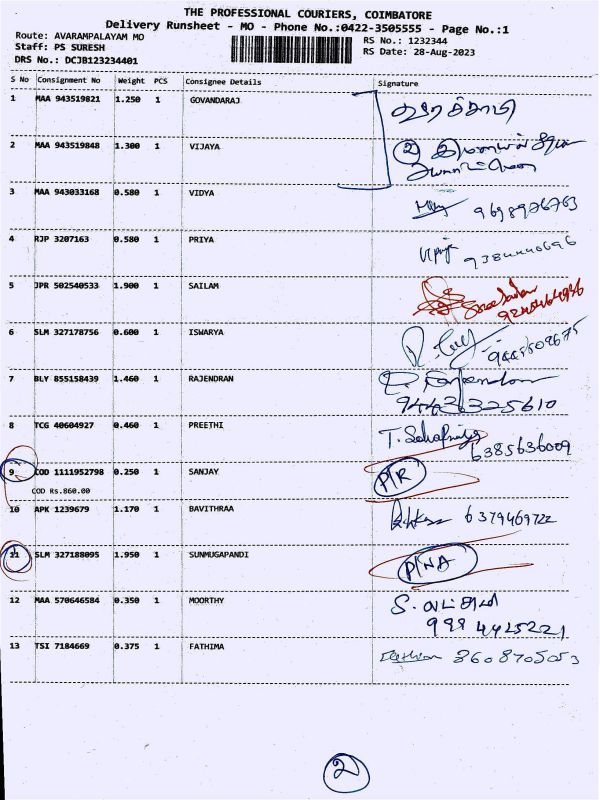 THE PROFESSIONAL COURIERS, COIMBATORE
Delivery Runsheet - MO - Phone No.:0422-3505555 - Page No.:1
Route: AVARAMPALAYAM MO
Staff: PS SURESH
DRS No.: DCJB123234401
RS No.: 1232344
RS Date: 28-Aug-2023
S No Consignment No Weight PCS Consignee Details Signature
1 MAA 943519821 1.250 1 GOVANDARAJ
2 MAA 943519848 1.300 1 VIJAYA 2
3 MAA 943033168 0.580 1 VIDYA 9698976763
4 RJP 3207163 0.580 1 PRIYA 9384440696
5 JPR 502540533 1.900 1 SAILAM
6 SLM 327178756 0.600 1 ISWARYA
7 BLY 855158439 1.460 1 RAJENDRAN
9443325610
8 TCG 40604927 0.460 1 PREETHI 6385636009
9 COD 1111952798 0.250 1 SANJAY P/R
COD Rs.860.00
10 APK 1239679 1.170 1 BAVITHRAA 6379469722
11 SLM 327188095 1.950 1 SUNMUGAPANDI P/NA
12 MAA 570646584 0.350 1 MOORTHY
9994425221
13 TSI 7184669 0.375 1 FATHIMA 8608705053
2